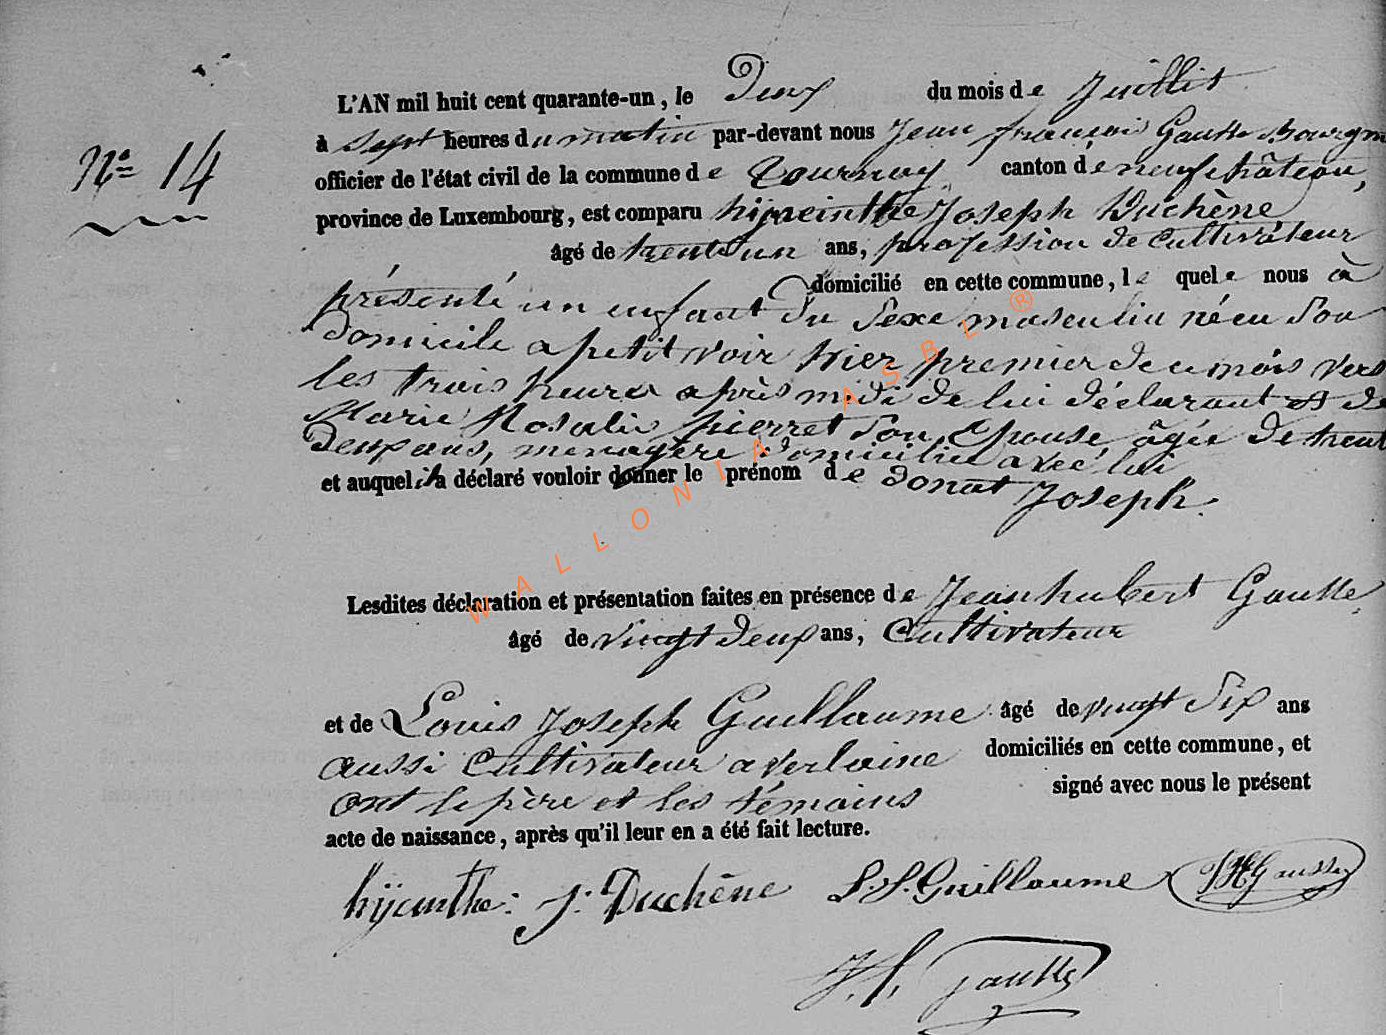 N° 14
L'AN mil huit cent quarante-un, le Deux du mois de Juillet
à Sept heures du matin par-devant nous Jean françois Gausse Bourgm
officier de l'état civil de la commune de Tournay canton de neufchâteau,
province de Luxembourg, est comparu hijacinthe Joseph Duchêne
âgé de trent un ans, profession de Cultivateur
domicilié en cette commune, le quel nous à
présenté un enfant Du Sexe masculin né en Son
Domicile a petit voir hier premier de ce mois vers
les trois heures après midi de lui déclarant et de
Marie Rosalie pierret Son Epouse âgée de trent
Deux ans, menagère Domiciliée avec lui
et auquel il a déclaré vouloir donner le prénom de Donat
Joseph.
Lesdites déclaration et présentation faites en présence de Jean hubert Gausse
âgé de vingt Deux ans, Cultivateur
et de Louis Joseph Guillaume âgé de vingt Six ans
aussi Cultivateur a verlaine domiciliés en cette commune, et
ont le père et les témoins signé avec nous le présent
acte de naissance, après qu'il leur en a été fait lecture.
hijcinthe: j: Duchêne L.J. Guillaume JH Gausse
J. f. Gausse
WALLONIA ASBL ®